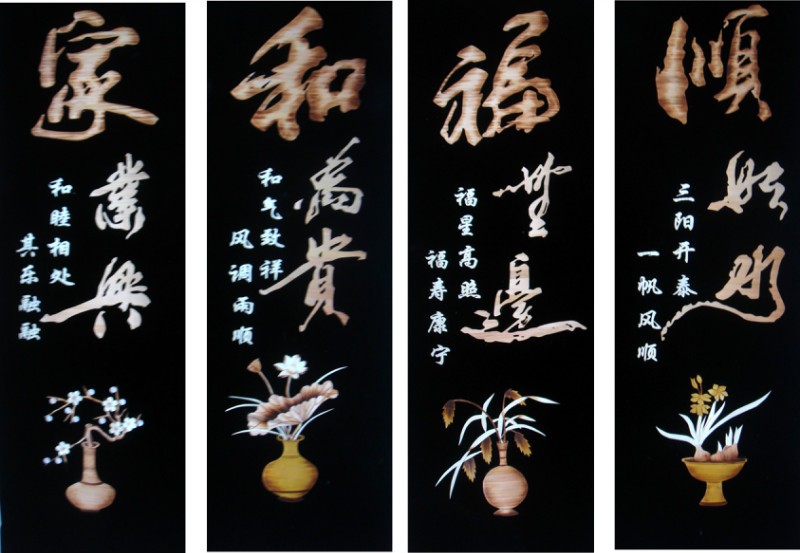 家業興
和睦相处
其乐融融
和萬貴
和气致祥
风调雨顺
福無邊
福星高照
福寿康宁
順
三阳开泰
一帆风顺